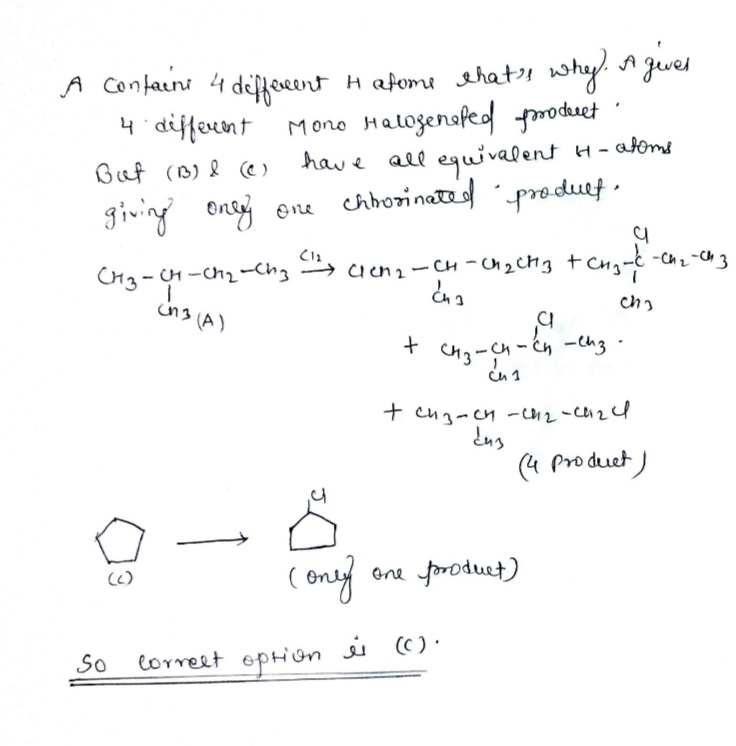 A contains 4 different H atoms that's why. A gives
4 different Mono Halogenated product.
But (B) & (C) have all equivalent H-atoms
giving only one chlorinated product.
CH3-CH-CH2-CH3 Cl2→ ClCH2-CH-CH2CH3 + CH3-C-CH2-CH3
Cl
CH3 (A)
CH3
CH3
+ CH3-CH-CH-CH3.
Cl
CH3
+ CH3-CH-CH2-CH2Cl
CH3
(4 Product)
Cl
(C)
(only one product)
So correct option is (C).